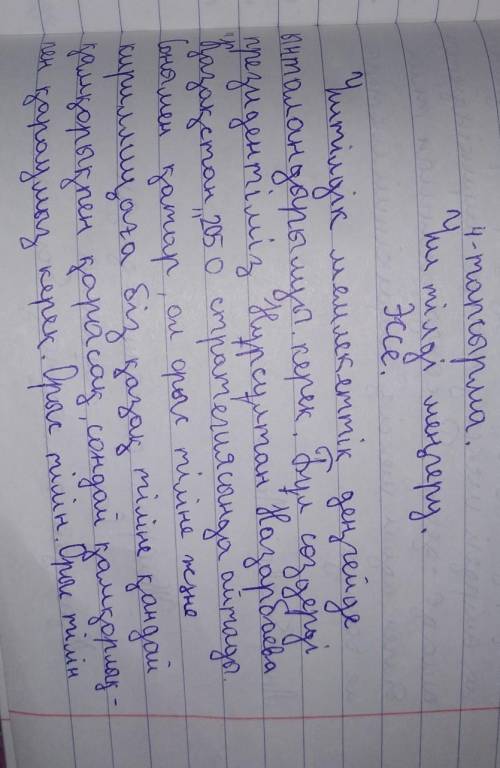 4-тапсырма.
Үш тілді меңгеру.
Эссе.
Үштілдік мемлекеттік деңгейде
ынталандырылуы керек. Бұл сөздерді
президентіміз Нұрсұлтан Назарбаева
"Қазақстан" 2050 стратегиясында айтады.
Сонымен қатар, ол орыс тіліне және
кириллицаға біз қазақ тіліне қандай
қамқорықпен қарасақ, сондай қамқорлық-
пен қарауымыз керек. Орыс тілін. Орыс тілін